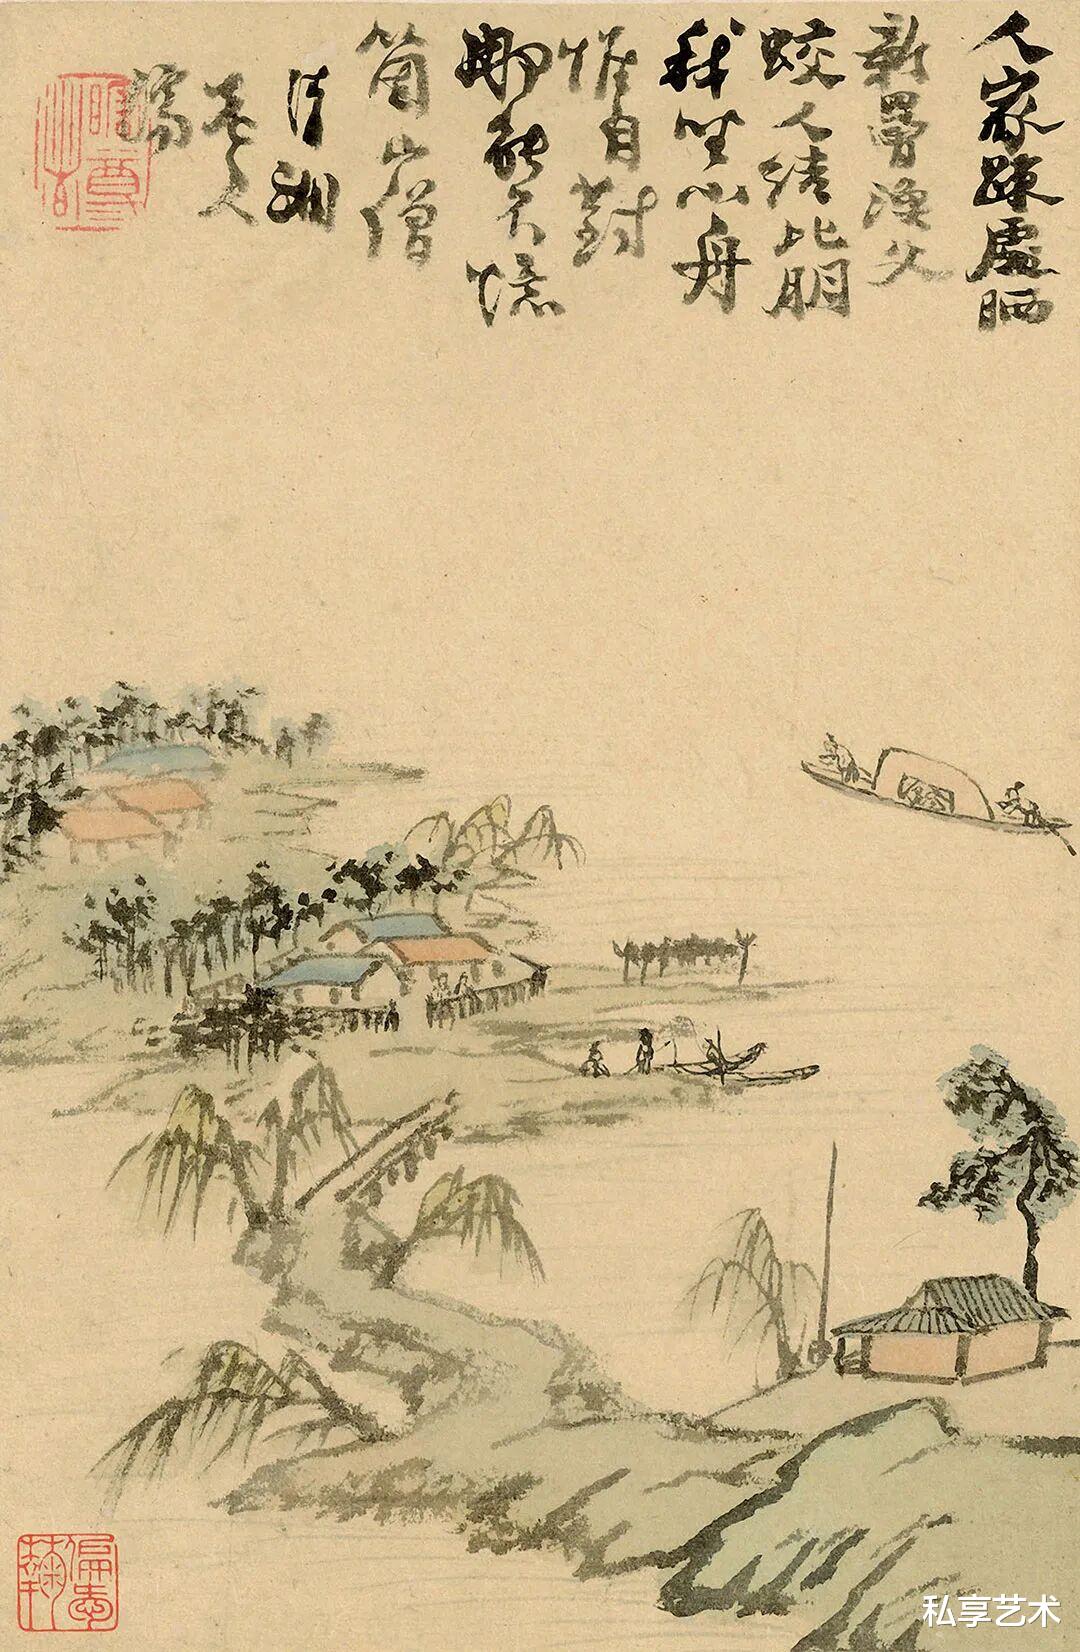 人家踈處晒
新罾漁父
蛟人結比朋
我坐小舟
惟自對
那能不憶
箇山僧
清湘
老人
濟
私享艺术